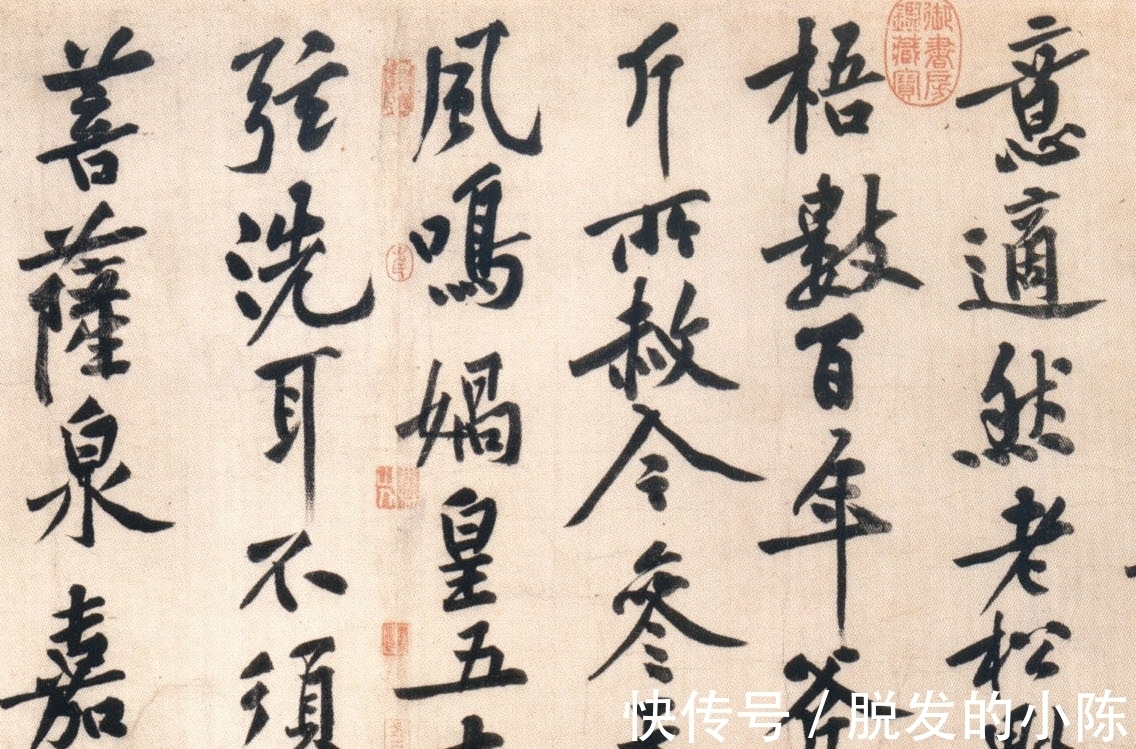 御書房鑑藏寶
意適然老松
梧數百年斧
斤所赦今參
風鳴媧皇五
弦洗耳不須
菩薩泉嘉
快传号 / 脱发的小陈